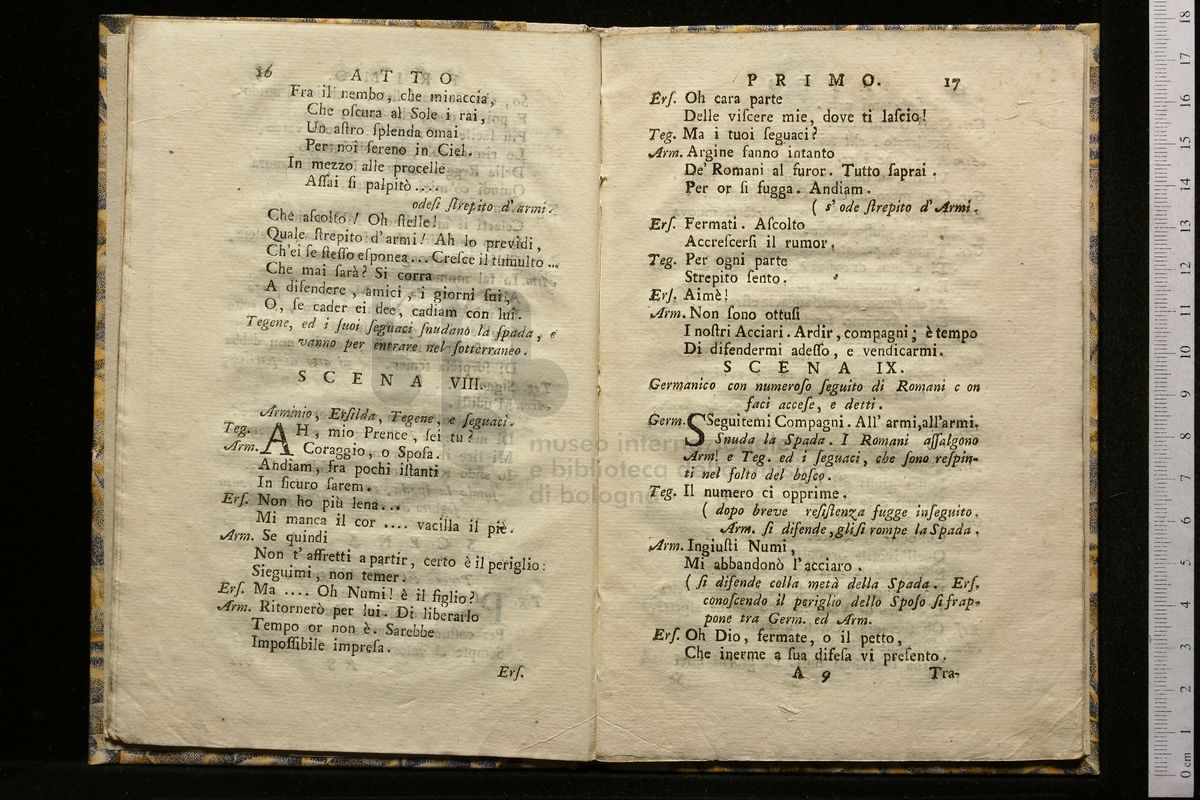 16 ATTO
Fra il nembo, che minaccia,
Che oſcura al Sole i rai,
Un aſtro ſplenda omai
Per noi ſereno in Ciel.
In mezzo alle procelle
Aſſai ſi palpitò ....
odeſi ſtrepito d'armi.
Che aſcolto! Oh ſtelle!
Quale ſtrepito d'armi! Ah lo previdi,
Ch'ei ſe ſteſſo eſpone a... Creſce il tumulto ...
Che mai ſarà? Si corra
A difendere, amici, i giorni ſui,
O, ſe cader ei dee, cadiam con lui.
Tegene, ed i ſuoi ſeguaci ſnudano la ſpada, e
vanno per entrare nel ſotterraneo.
SCENA VIII.
Arminio, Erſilda, Tegene, e ſeguaci.
Teg. AH, mio Prence, ſei tu?
Arm. Coraggio, o Spoſa.
Andiam, fra pochi iſtanti
In ſicuro ſarem.
Erſ. Non ho più lena...
Mi manca il cor .... vacilla il piè.
Arm. Se quindi
Non t'affretti a partir, certo è il periglio:
Sieguimi, non temer.
Erſ. Ma .... Oh Numi! è il figlio?
Arm. Ritornerò per lui. Di liberarlo
Tempo or non è. Sarebbe
Impoſſibile impreſa.
Erſ.
PRIMO. 17
Erſ. Oh cara parte
Delle viſcere mie, dove ti laſcio!
Teg. Ma i tuoi ſeguaci?
Arm. Argine fanno intanto
De' Romani al furor. Tutto ſaprai.
Per or ſi fugga. Andiam.
( s' ode ſtrepito d' Armi.
Erſ. Fermati. Aſcolto
Accreſcerſi il rumor.
Teg. Per ogni parte
Strepito ſento.
Erſ. Aimè!
Arm. Non ſono ottuſi
I noſtri Acciari. Ardir, compagni; è tempo
Di difendermi adeſſo, e vendicarmi.
SCENA IX.
Germanico con numeroſo ſeguito di Romani c on
faci acceſe, e detti.
Germ. SSeguitemi Compagni. All' armi,all'armi.
Snuda la Spada. I Romani aſſalgono
Arm. e Teg. ed i ſeguaci, che ſono reſpin-
ti nel folto del boſco.
Teg. Il numero ci opprime.
( dopo breve reſiſtenza fugge inſeguito.
Arm. ſi difende, gliſi rompe la Spada.
Arm. Ingiuſti Numi,
Mi abbandonò l'acciaro.
( ſi difende colla metà della Spada. Erſ.
conoſcendo il periglio dello Spoſo ſi frap-
pone tra Germ. ed Arm.
Erſ. Oh Dio, fermate, o il petto,
Che inerme a ſua difeſa vi preſento.
A 9 Tra-
museo intern
e biblioteca d
di bologna
0 cm 1 2 3 4 5 6 7 8 9 10 11 12 13 14 15 16 17 18